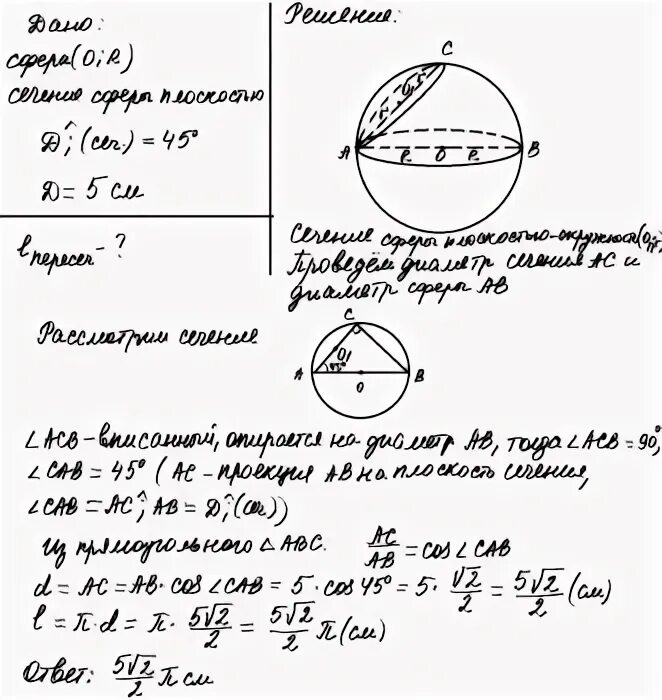 Дано:
сфера(О; R)
сечение сферы плоскостью
Д^; (сеч.) = 45°
Д = 5 см
l пересеч - ?
Решение:
C
r O₁ r
A R O R B
Сечение сферы плоскостью-окружность(O₁; r)
Проведём диаметр сечения AC и
диаметр сферы AB
Рассмотрим сечение
C
O₁
A 45° B
O
∠ACB-вписанный, опирается на диаметр AB, тогда ∠ACB = 90°,
∠CAB = 45° (AC - проекция AB на плоскость сечения,
∠CAB = AC^; AB = Д^; (сеч))
Из прямоугольного △ABC. AC/AB = cos∠CAB
d = AC = AB · cos∠CAB = 5 · cos 45° = 5 · √2/2 = 5√2/2 (см)
l = π · d = π · 5√2/2 = 5√2/2 π (см)
Ответ: 5√2/2 π см